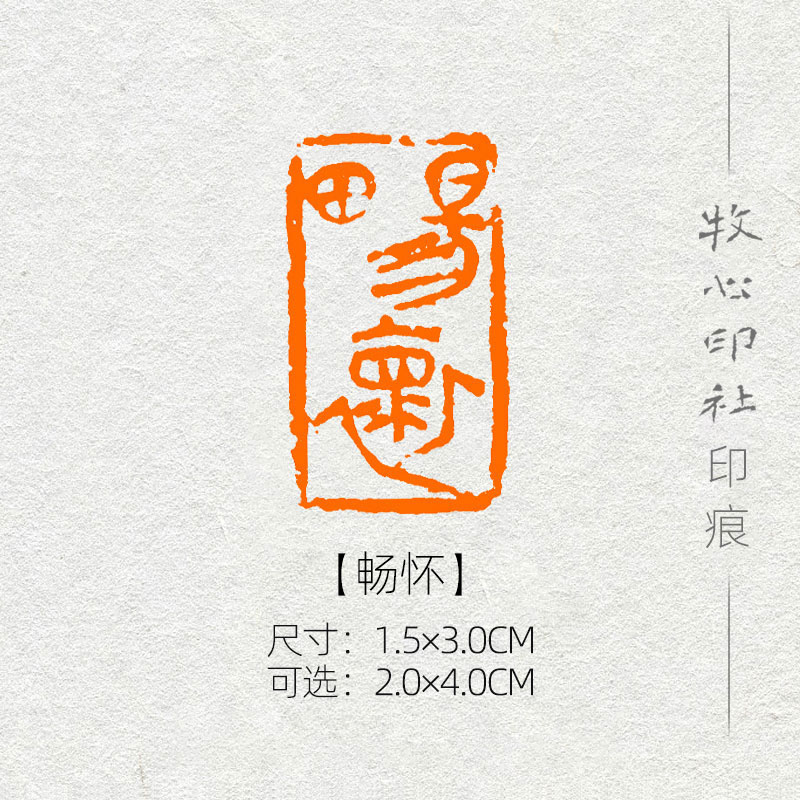 畅怀
【畅怀】
尺寸：1.5×3.0CM
可选：2.0×4.0CM
牧心印社印痕